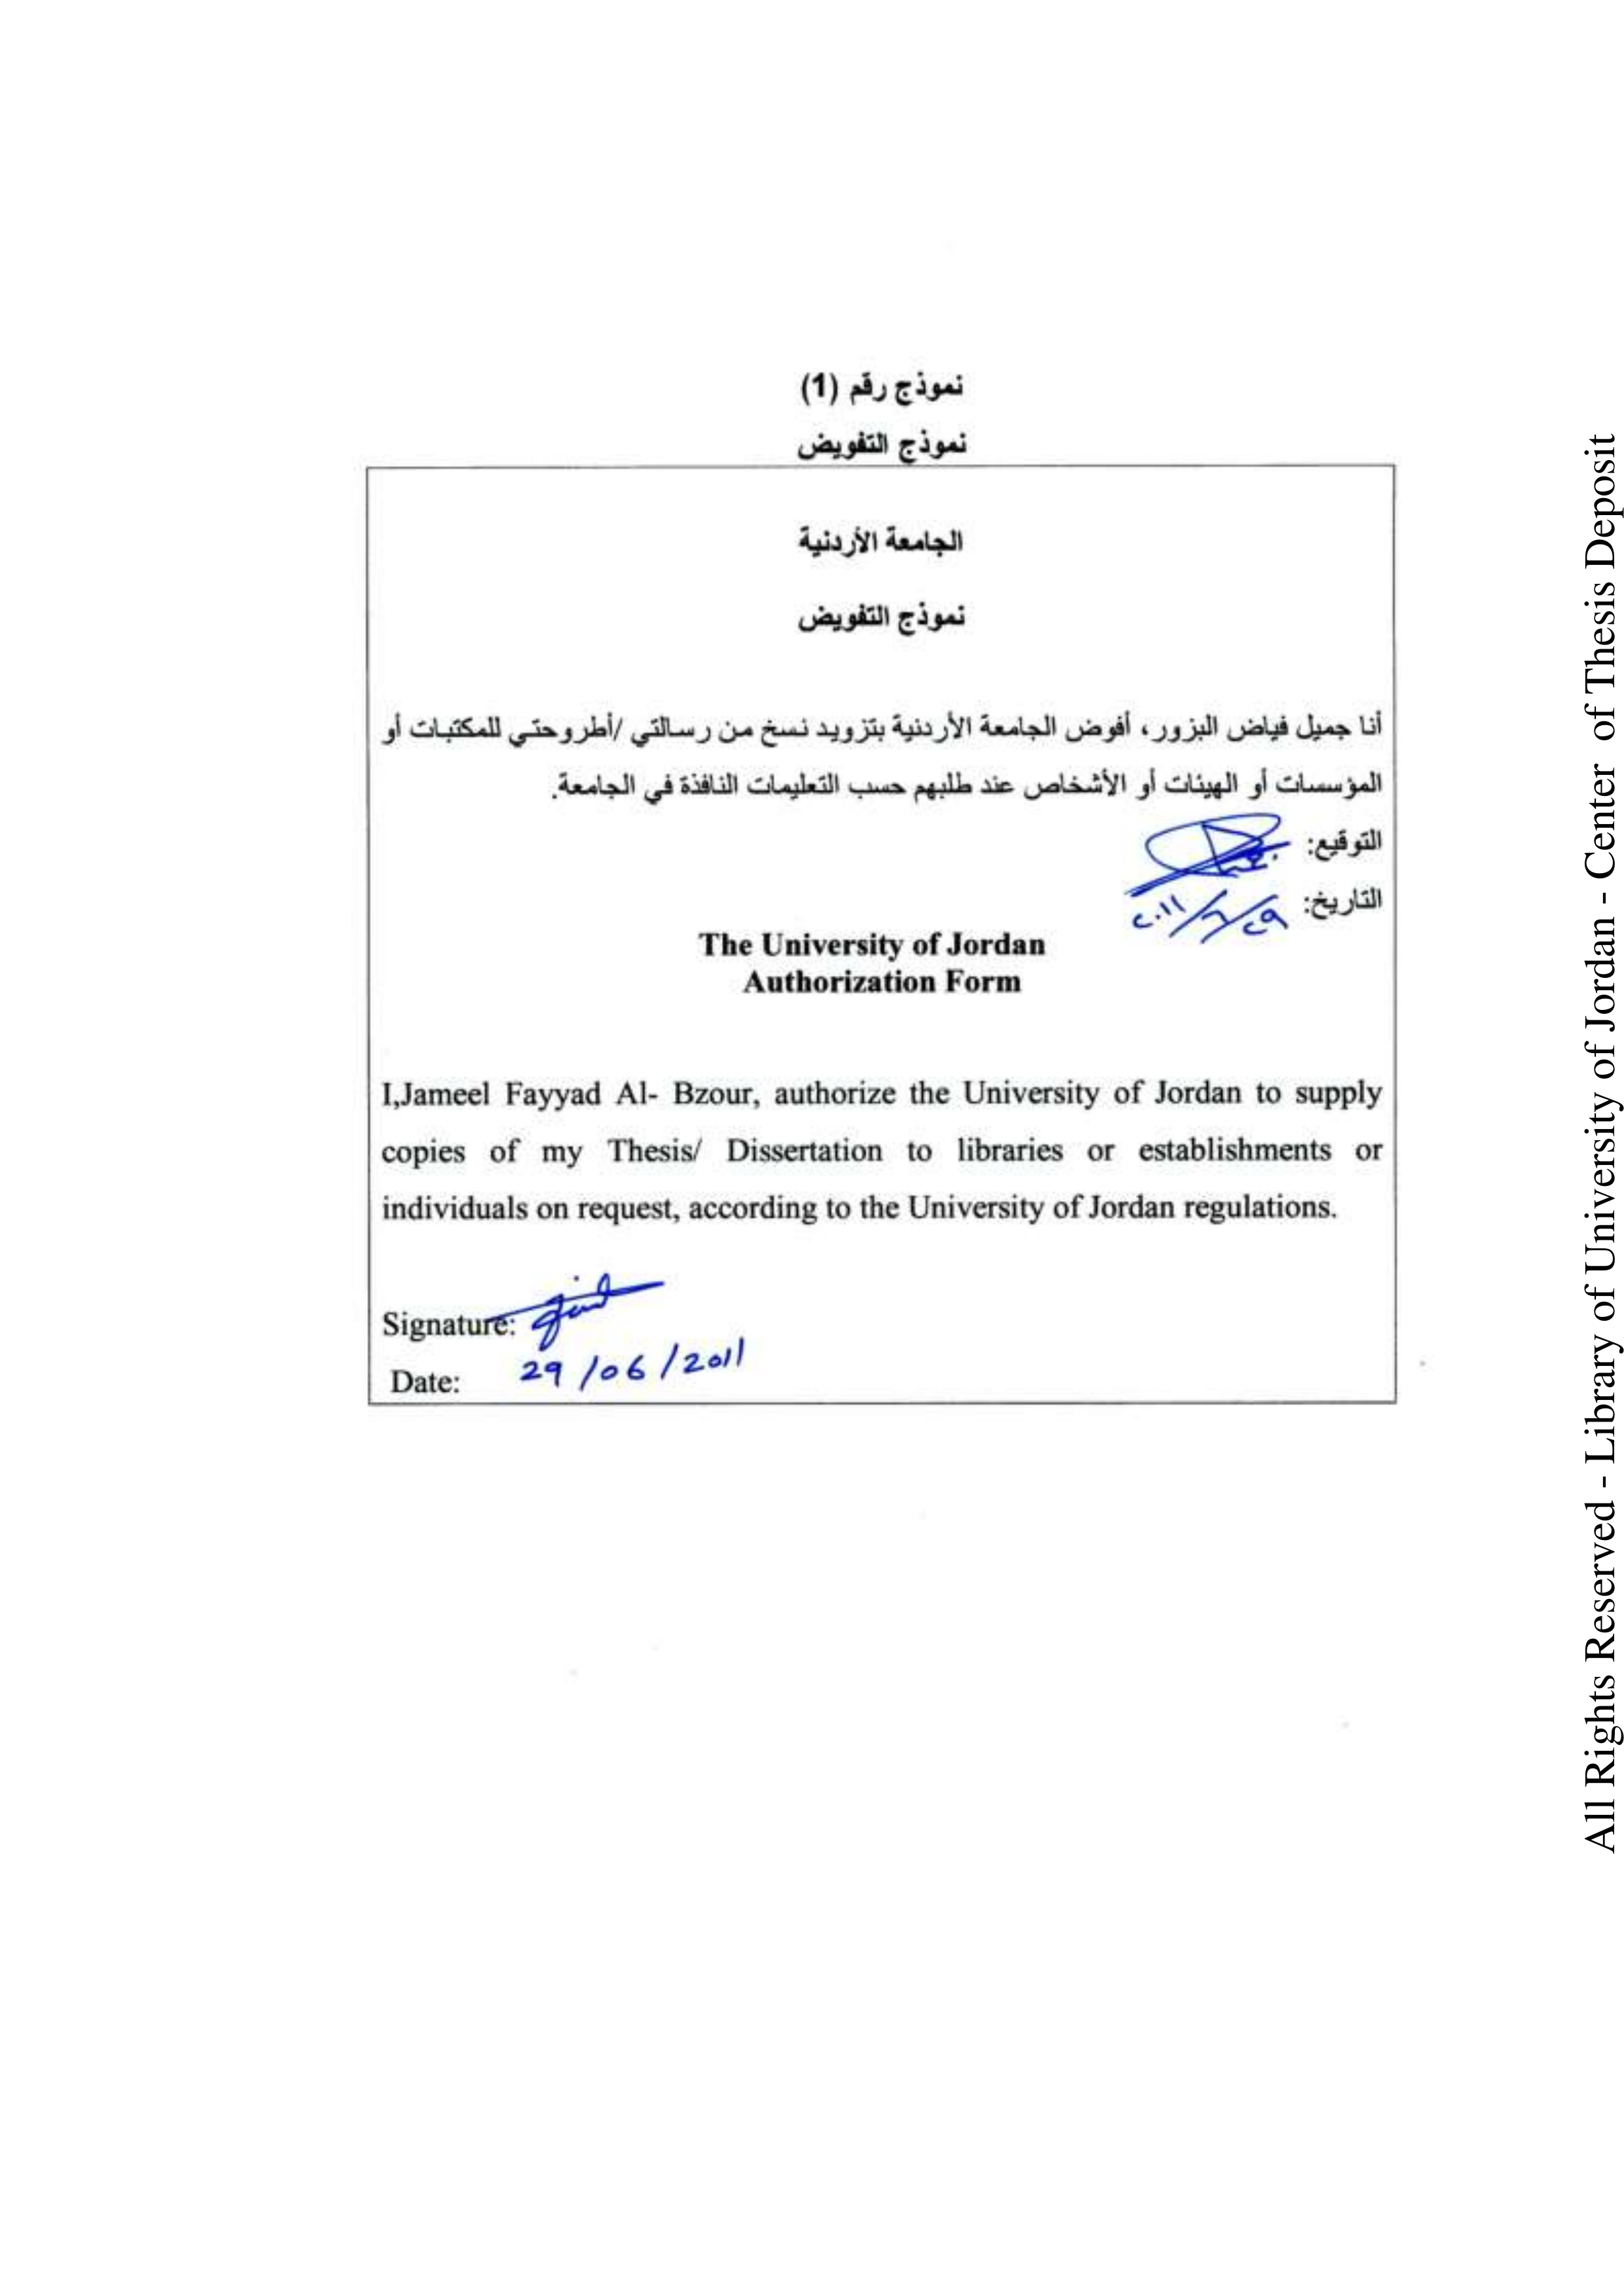 نموذج رقم (1)
نموذج التفويض
الجامعة الأردنية
نموذج التفويض
أنا جميل فياض البزور، أفوض الجامعة الأردنية بتزويد نسخ من رسالتي /أطروحتي للمكتبات أو
المؤسسات أو الهيئات أو الأشخاص عند طلبهم حسب التعليمات النافذة في الجامعة.
التوقيع:
التاريخ: ٢٩/٦/٢٠١١
The University of Jordan
Authorization Form
I,Jameel Fayyad Al- Bzour, authorize the University of Jordan to supply
copies of my Thesis/ Dissertation to libraries or establishments or
individuals on request, according to the University of Jordan regulations.
Signature:
Date: 29/06/2011
All Rights Reserved - Library of University of Jordan - Center of Thesis Deposit